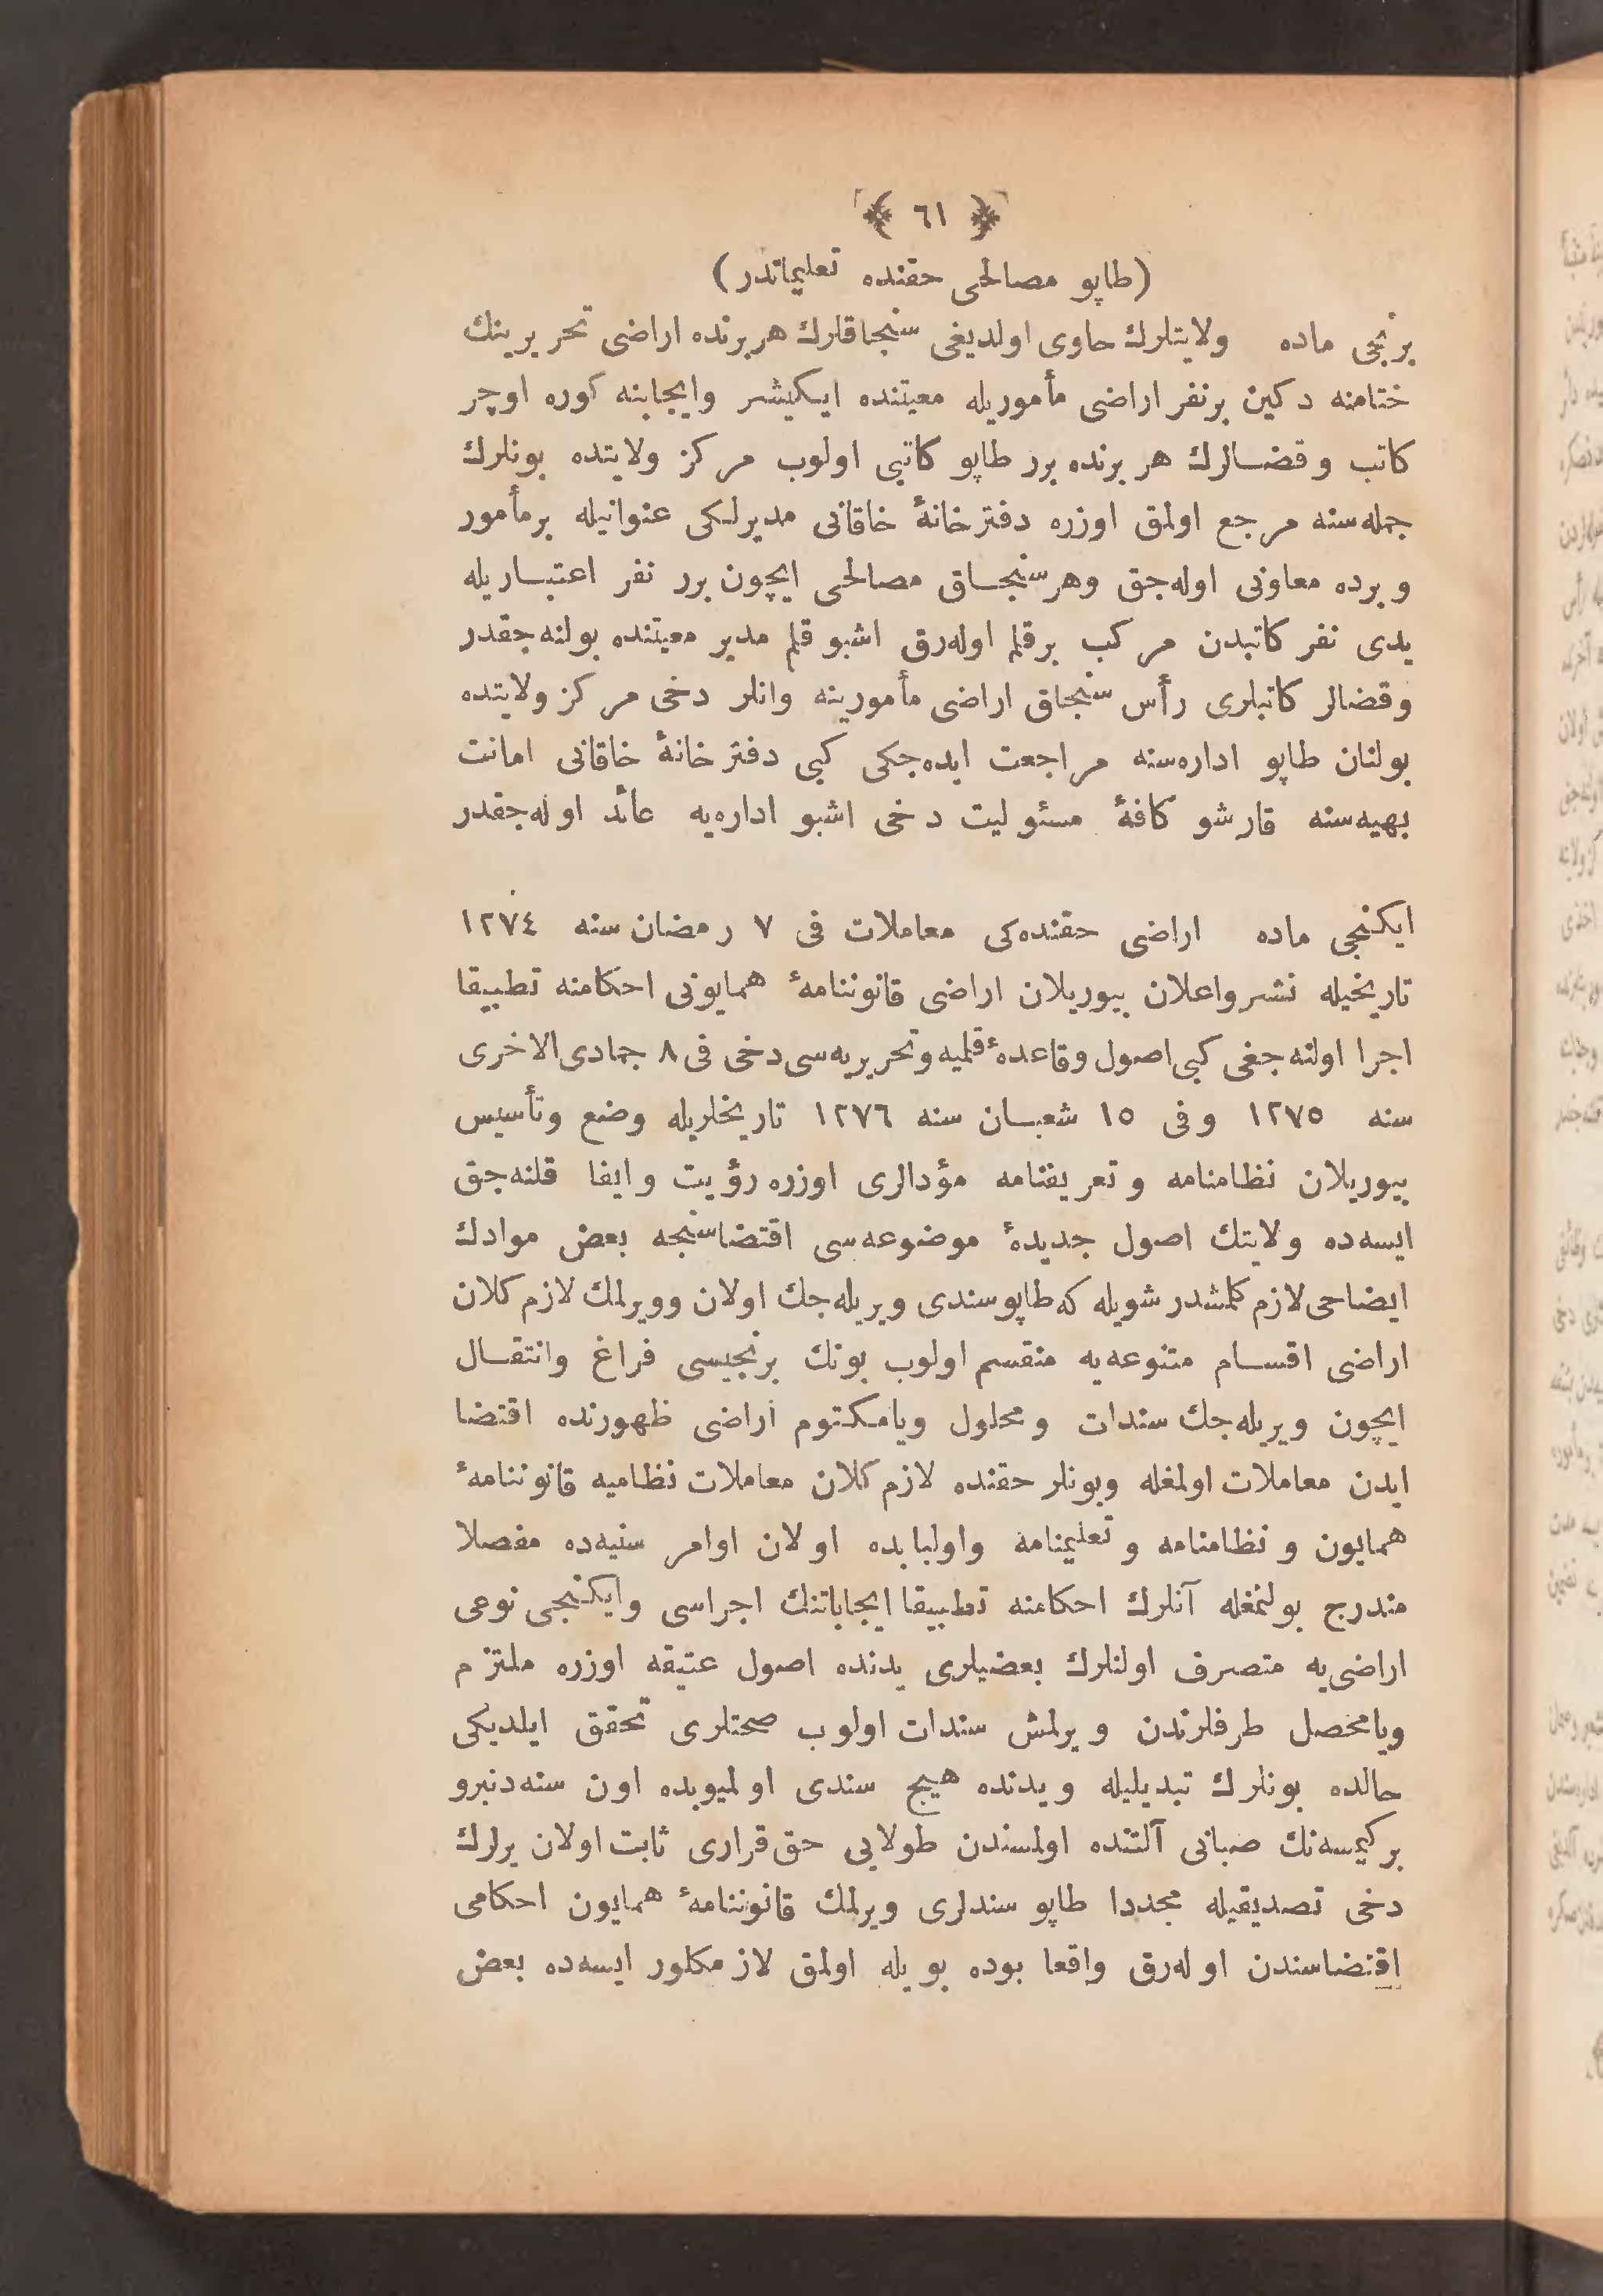 ﴿ ٦١ ﴾
(طاپو مصالحی حقنده تعلیماتدر)
برنجی ماده ولایتلرك حاوی اولدیغی سنجاقلرك هر برنده اراضی تحریرینك
ختامنه دكین برنفر اراضی مأموریله معیتنده ایكیشر وایجابنه كوره اوچر
كاتب وقضالرك هر برنده برر طاپو كاتبی اولوب مركز ولایتده بونلرك
جمله‌سنه مرجع اولمق اوزره دفترخانهٔ خاقانی مدیرلكی عنوانیله برمأمور
وبرده معاونی اوله‌جق وهر سنجاق مصالحی ایچون برر نفر اعتباریله
یدی نفر كاتبدن مركب برقلم اوله‌رق اشبو قلم مدیر معیتنده بولنه‌جقدر
وقضالر كاتبلری رأس سنجاق اراضی مأمورینه وانلر دخی مركز ولایتده
بولنان طاپو اداره‌سنه مراجعت ایده‌جكی كبی دفترخانهٔ خاقانی امانت
بهیه‌سنه قارشو كافهٔ مسئولیت دخی اشبو اداره‌یه عائد اوله‌جقدر
ایكنجی ماده اراضی حقنده‌كی معاملات فی ٧ رمضان سنه ١٢٧٤
تاریخیله نشر واعلان بیوریلان اراضی قانوننامهٔ همایونی احكامنه تطبیقا
اجرا اولنه‌جغی كبی اصول وقاعدهٔ قلمیه وتحریریه‌سی دخی فی ٨ جمادی الاخری
سنه ١٢٧٥ وفی ١٥ شعبان سنه ١٢٧٦ تاریخلریله وضع وتأسیس
بیوریلان نظامنامه وتعریفنامه مؤدالری اوزره رؤیت وایفا قلنه‌جق
ایسه‌ده ولایتك اصول جدیدهٔ موضوعه‌سی اقتضاسنجه بعض موادك
ایضاحی لازم كلمشدر شویله كه طاپو سندی ویریله‌جك اولان وویرلمك لازم كلان
اراضی اقسام متنوعه‌یه منقسم اولوب بونك برنجیسی فراغ وانتقال
ایچون ویریله‌جك سندات ومحلول ویامكتوم اراضی ظهورنده اقتضا
ایدن معاملات اولمغله وبونلر حقنده لازم كلان معاملات نظامیه قانوننامهٔ
همایون ونظامنامه وتعلیمنامه واولبابده اولان اوامر سنیه‌ده مفصلا
مندرج بولنمغله آنلرك احكامنه تطبیقا ایجاباتنك اجراسی وایكنجی نوعی
اراضی‌یه متصرف اولنلرك بعضیلری یدنده اصول عتیقه اوزره ملتزم
ویامحصل طرفلرندن ویرلمش سندات اولوب صحتلری تحقق ایلدیكی
حالده بونلرك تبدیلیله ویدنده هیچ سندی اولمیوبده اون سنه‌دنبرو
بر كیمسه‌نك صبانی آلتنده اولمسندن طولایی حق قراری ثابت اولان یرلرك
دخی تصدیقیله مجددا طاپو سندلری ویرلمك قانوننامهٔ همایون احكامی
اقتضاسندن اوله‌رق واقعا بوده بویله اولمق لازمكلور ایسه‌ده بعض